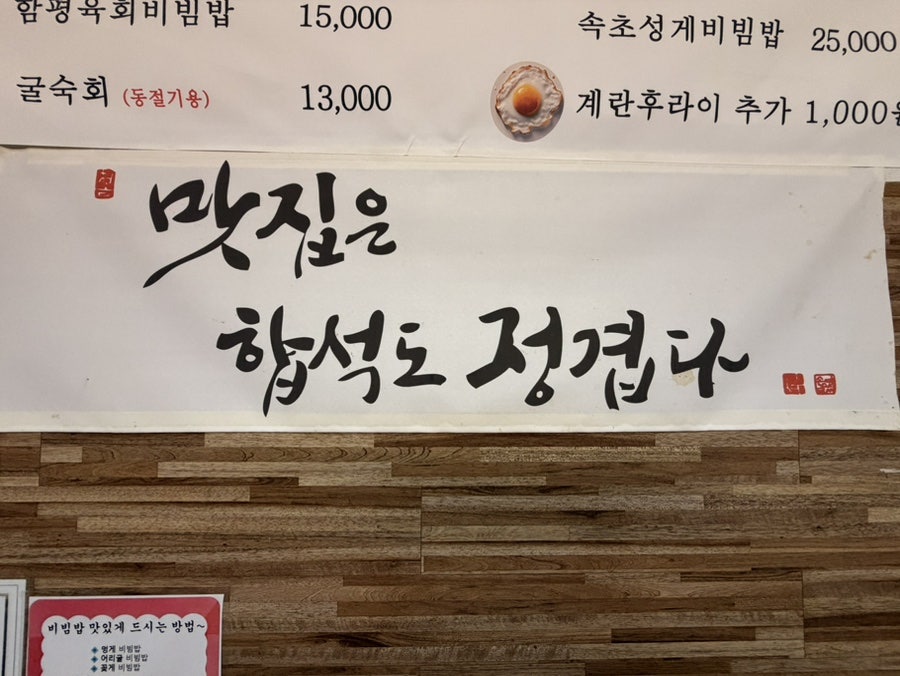 함평육회비빔밥 15,000
굴숙회 (동절기용) 13,000
속초성게비빔밥 25,000
계란후라이 추가 1,000원
맛집은
합석도 정겹다
비빔밥 맛있게 드시는 방법~
멍게 비빔밥
어리굴 비빔밥
꽃게 비빔밥